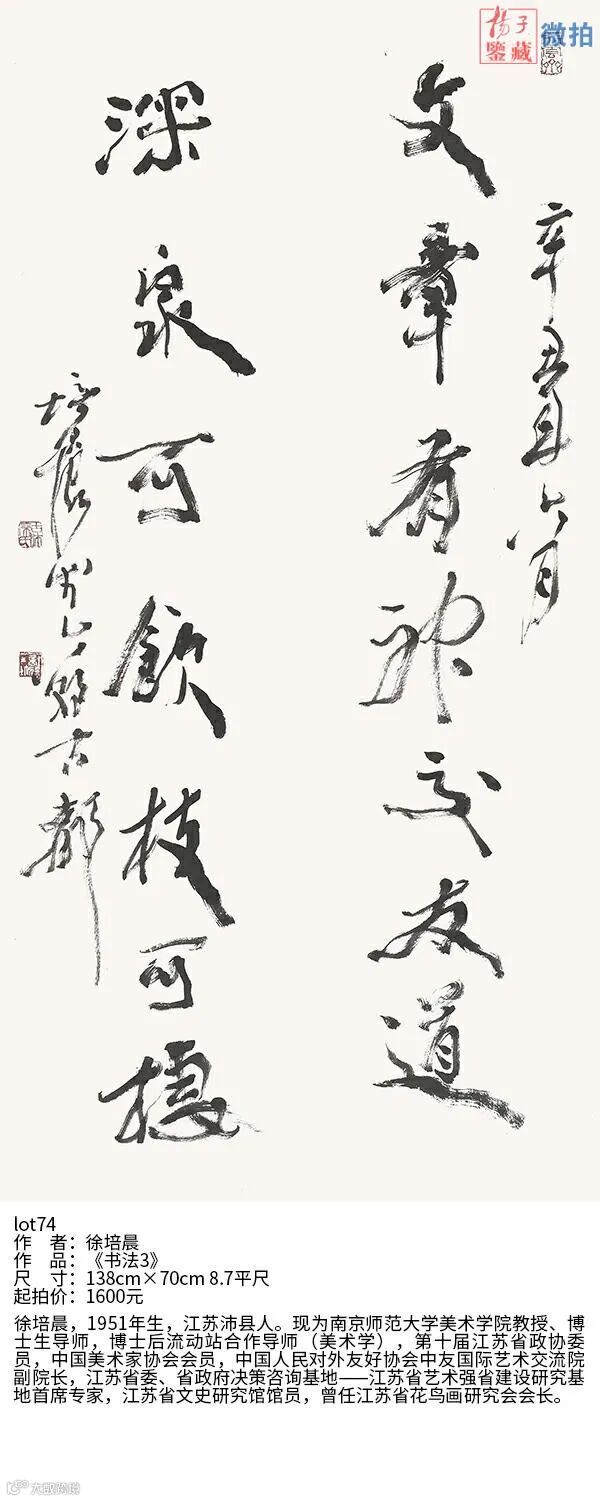 揚子
鑒藏
微拍
辛丑年六月
文章有神交友道
深泉可飲枝可
培晨
古都
lot74
作 者：徐培晨
作 品：《书法3》
尺 寸：138cm×70cm 8.7平尺
起拍价：1600元
徐培晨，1951年生，江苏沛县人。现为南京师范大学美术学院教授、博
士生导师，博士后流动站合作导师（美术学），第十届江苏省政协委
员，中国美术家协会会员，中国人民对外友好协会中友国际艺术交流院
副院长，江苏省委、省政府决策咨询基地——江苏省艺术强省建设研究基
地首席专家，江苏省文史研究馆馆员，曾任江苏省花鸟画研究会会长。
大欧跨境